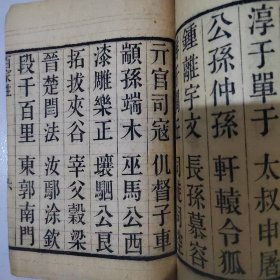 淳于單于 太叔申屠
公孫仲孫 軒轅令狐
鍾離宇文 長孫慕容
亓官司寇 仉督子車
顓孫端木 巫馬公西
漆雕樂正 壤駟公良
拓拔夾谷 宰父穀梁
晉楚閆法 汝鄢涂欽
段千百里 東郭南門
百家姓 六